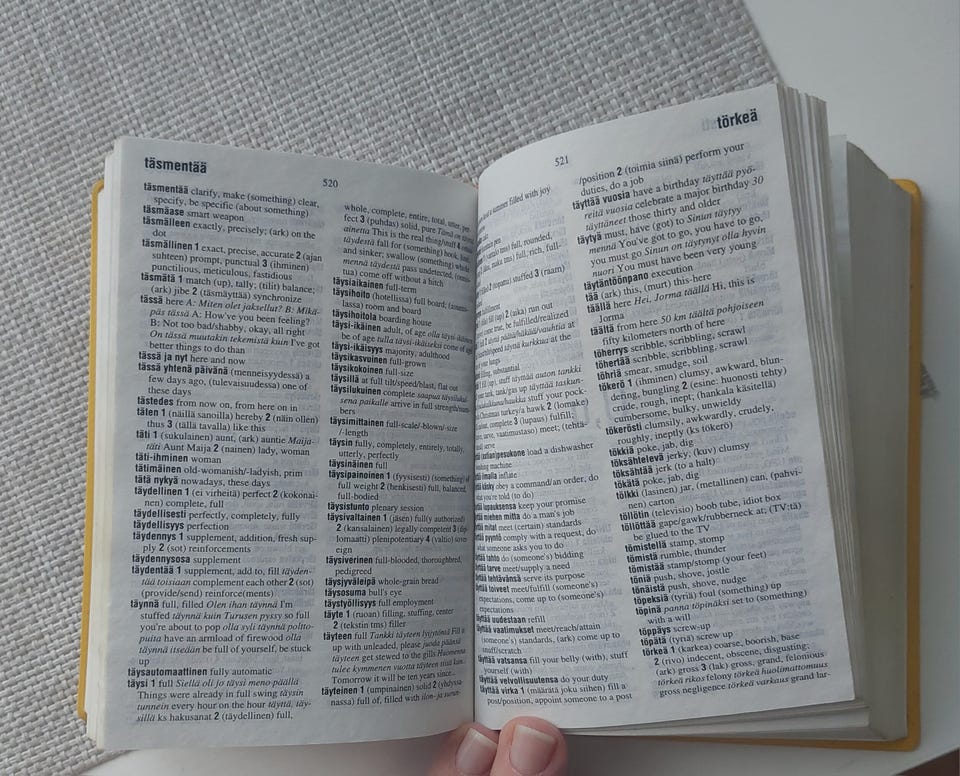 täsmentää
520
täsmentää clarify, make (something) clear,
specify, be specific (about something)
täsmäase smart weapon
täsmälleen exactly, precisely; (ark) on the
dot
täsmällinen 1 exact, precise, accurate 2 (ajan
suhteen) prompt, punctual 3 (ihminen)
punctilious, meticulous, fastidious
täsmätä 1 match (up), tally, (tilit) balance;
(ark) jibe 2 (täsmäyttää) synchronize
tässä here A: Miten olet jaksellut? B: Mikä-
päs tässä A: How've you been feeling?
B: Not too bad/shabby, okay, all right
On tässä muutakin tekemistä kuin I've got
better things to do than
tässä ja nyt here and now
tässä yhtenä päivänä (menneisyydessä) a
few days ago, (tulevaisuudessa) one of
these days
tästedes from now on, from here on in
täten 1 (näillä sanoilla) hereby 2 (näin ollen)
thus 3 (tällä tavalla) like this
täti 1 (sukulainen) aunt, (ark) auntie Maija-
täti Aunt Maija 2 (nainen) lady, woman
täti-ihminen woman
tätimäinen old-womanish/-ladyish, prim
tätä nykyä nowadays, these days
täydellinen 1 (ei virheitä) perfect 2 (kokonai-
nen) complete, full
täydellisesti perfectly, completely, fully
täydellisyys perfection
täydennys 1 supplement, addition, fresh sup-
ply 2 (sot) reinforcements
täydennysosa supplement
täydentää 1 supplement, add to, fill täyden-
tää toisiaan complement each other 2 (sot)
(provide/send) reinforce(ments)
täynnä full, filled Olen ihan täynnä I'm
stuffed täynnä kuin Turusen pyssy so full
you're about to pop olla syli täynnä poltto-
puita have an armload of firewood olla
täynnä itseään be full of yourself, be stuck
up
täysautomaattinen fully automatic
täysi 1 full Siellä oli jo täysi meno päällä
Things were already in full swing täysin
tunnein every hour on the hour täyttä, täy-
sillä ks hakusanat 2 (täydellinen) full,
whole, complete, entire, total, utter, per-
fect 3 (puhdas) solid, pure Tämä on täyttä
ainetta This is the real thing/stuff 4
täydestä fall for (something) hook, line
and sinker; swallow (something) whole
mennä täydestä pass undetected,
tua) come off without a hitch
täysiaikainen full-term
täysihoito (hotellissa) full board;
lassa) room and board
täysihoitola boarding house
täysi-ikäinen adult, of age olla täysi-ikäinen
be of age tulla täysi-ikäiseksi come of age
täysi-ikäisyys majority, adulthood
täysikasvoinen full-grown
täysikokoinen full-size
täysillä at full tilt/speed/blast, flat out
täysilukuinen complete saapua täysiluku-
isena paikalle arrive in full strength/num-
bers
täysimittainen full-scale/-blown/-size
/-length
täysin fully, completely, entirely, totally,
utterly, perfectly
täysinäinen full
täysipainoinen 1 (fyysisesti) (something) of
full weight 2 (henkisesti) full, balanced,
full-bodied
täysistunto plenary session
täysivaltainen 1 (jäsen) full(y authorized)
2 (kansalainen) legally competent 3 (dip-
lomaatti) plenipotentiary 4 (valtio) sover-
eign
täysiverinen full-blooded, thoroughbred,
pedigreed
täysjyväleipä whole-grain bread
täysosuma bull's eye
täystyöllisyys full employment
täyte 1 (ruoan) filling, stuffing, center
2 (tekstin tms) filler
täyteen full Tankki täyteen lyijytöntä Fill 'er
up with unleaded, please juoda päänsä
täyteen get stewed to the gills Huomenna
tulee kymmenen vuotta täyteen siitä kun
Tomorrow it will be ten years since
täyteinen 1 (umpinainen) solid 2 (yhdys-
nassa) full of, filled with ilon- ja surun-
521
törkeä
a summer filled with joy
pen
full, rounded,
tms) full, rich, full-
stuffed 3 (raam)
fill (up) 2 (aika) run out
come true, be fulfilled/realized
at the
of your lungs
filling, substantial
fill (up), stuff täyttää auton tankki
tank/gas up täyttää taskun-
stuff your pock-
Christmas turkey/a hawk 2 (lomake)
out, complete 3 (lupaus) fulfill;
tarve, vaatimustaso) meet; (tehtä-
serve
load a dishwasher
washing machine
ilmalla inflate
käsky obey a command/an order, do
you're told (to do)
lupauksensa keep your promise
miehen mitta do a man's job
mitat meet (certain) standards
pyyntö comply with a request, do
what someone asks you to do
tahto do (someone's) bidding
tarve meet/supply a need
tehtävänsä serve its purpose
toiveet meet/fulfill (someone's)
expectations, come up to (someone's)
expectations
täyttää uudestaan refill
täyttää vaatimukset meet/reach/attain
(someone's) standards, (ark) come up to
snuff/scratch
täyttää vatsansa fill your belly (with), stuff
yourself (with)
täyttää velvollisuutensa do your duty
täyttää virka 1 (määrätä joku siihen) fill a
post/position, appoint someone to a post
/position 2 (toimia siinä) perform your
duties, do a job
täyttää vuosia have a birthday täyttää pyö-
reitä vuosia celebrate a major birthday 30
täyttäneet those thirty and older
täytyä must, have (got) to Sinun täytyy
mennä You've got to go, you have to go,
you must go Sinun on täytynyt olla hyvin
nuori You must have been very young
täytäntöönpano execution
tää (ark) this, (murt) this-here
täällä here Hei, Jorma täällä Hi, this is
Jorma
täältä from here 50 km täältä pohjoiseen
fifty kilometers north of here
töherrys scribble, scribbling, scrawl
töhertää scribble, scribbling, scrawl
töhriä smear, smudge, soil
tökerö 1 (ihminen) clumsy, awkward, blun-
dering, bungling 2 (esine: huonosti tehty)
crude, rough, inept; (hankala käsitellä)
cumbersome, bulky, unwieldy
tökerösti clumsily, awkwardly, crudely,
roughly, ineptly (ks tökerö)
tökkiä poke, jab, dig
töksähtelevä jerky, (kuv) clumsy
töksähtää jerk (to a halt)
tökätä poke, jab, dig
tölkki (lasinen) jar, (metallinen) can, (pahvi-
nen) carton
töllötin (televisio) boob tube, idiot box
töllöttää gape/gawk/rubberneck at; (TV:tä)
be glued to the TV
tömistellä stamp, stomp
tömistä rumble, thunder
tömistää stamp/stomp (your feet)
töniä push, shove, jostle
tönäistä push, shove, nudge
töpeksiä (tyriä) foul (something) up
töpinä panna töpinäksi set to (something)
with a will
töppäys screw-up
töpätä (tyriä) screw up
törkeä 1 (karkea) coarse, boorish, base
2 (rivo) indecent, obscene, disgusting;
(ark) gross 3 (lak) gross, grand, felonious
törkeä rikos felony törkeä huolimattomuus
gross negligence törkeä varkaus grand lar-